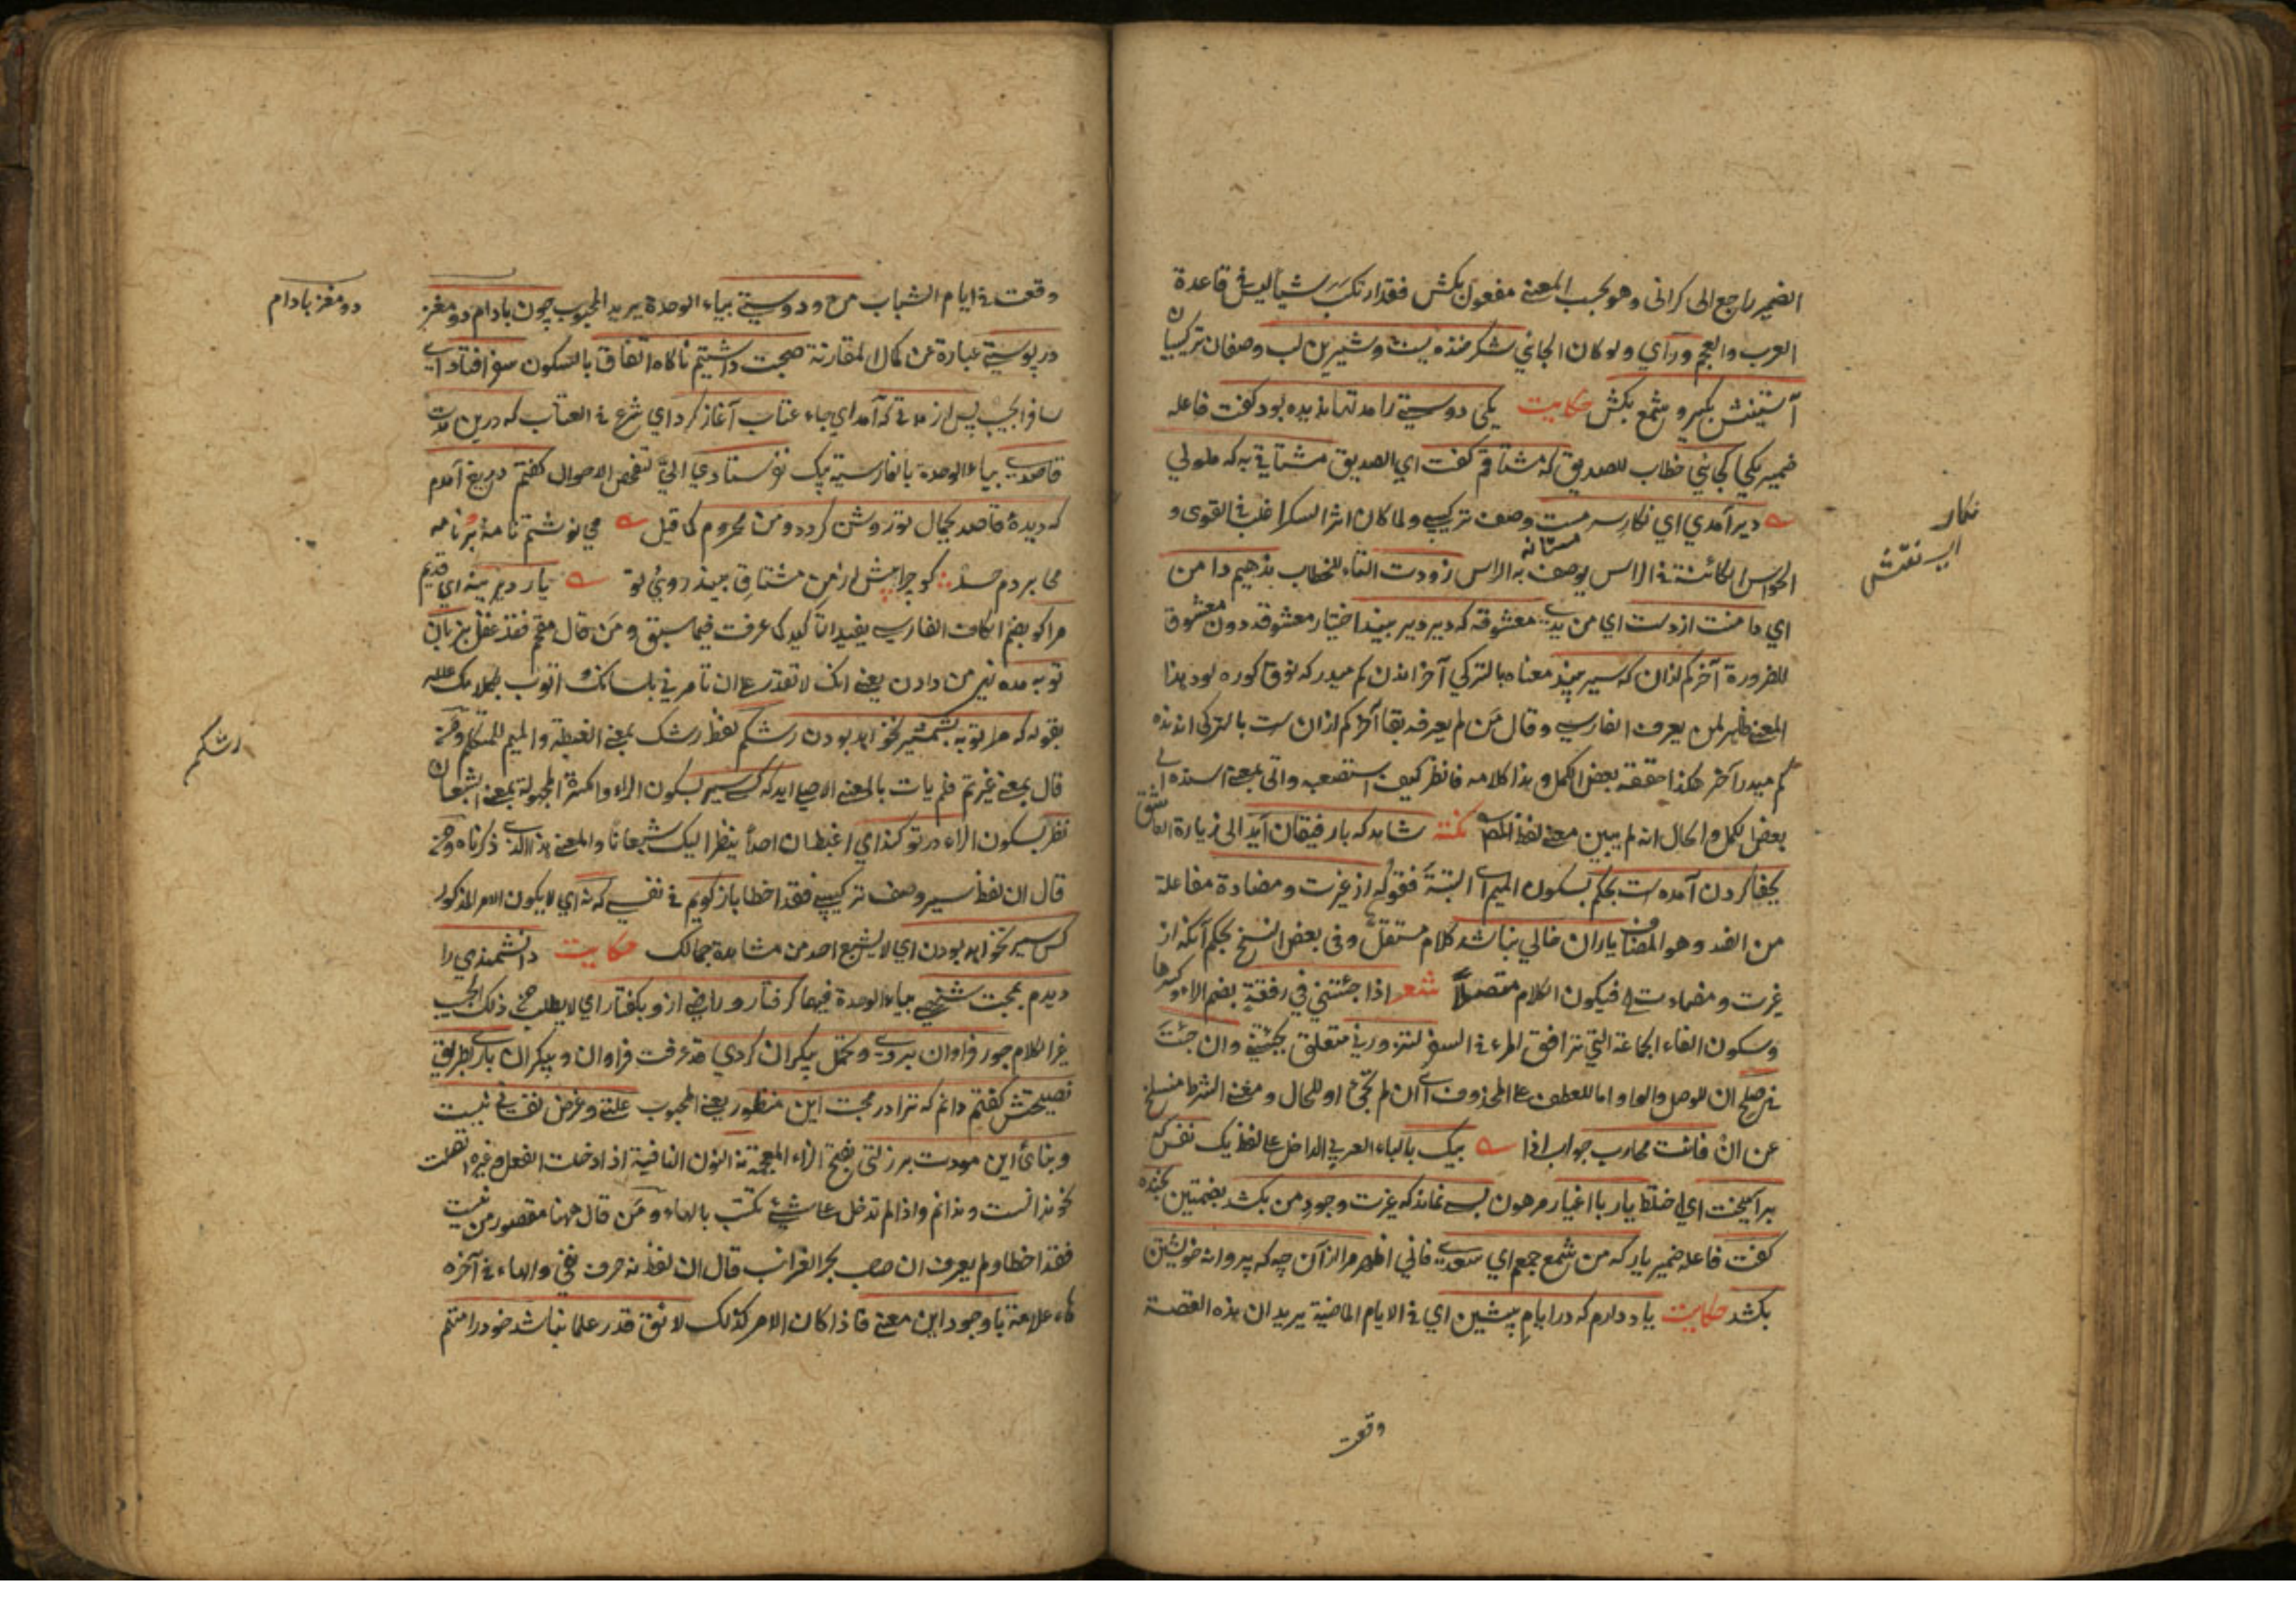 الضمير راجع الى كرانى وهو بحسب المعنى مفعول بكش فقد ارتكب شيأ ليس فى قاعدة
العرب والعجم ورآي ولو كان الجاني شكر خنده يست وشيرين لب وصفان تركيبيان
آستينش بكير و شمع بكش حكايت يكى دوستي را مدتها نديده بود كفت فاعله
ضمير يكى كجائي خطاب للصديق كه مشتاقم كفت اي الصديق مشتاقي به كه ملولي
دير آمدي اي نكار سرمست وصف تركيبي ولما كان اثر السكر اغلب فى القوى و
مستانه
الحواس الكائنة فى الراس يوصف به الراس زودت التاء للخطاب ندهيم دامن
اي دامنت از دست اي من يدي معشوقه كه دير دير بيند اختيار معشوقه دون معشوق
للضرورة آخر كم ازان كه سير بيند معناه بالتركي آخر اندن كم ميدر كه لوقا كوره لود هذا
المعنى ظاهر لمن يعرف الفارسي وقال من لم يعرفه بقا آخر كم ازان ست بالتركى اندنده
كم ميدر آخر هكذا حققه بعض الكمل و هذا كلامه فانظر كيف استصعبه واتى بمعنى اسنده الى
بعض الكمل والحال انه لم يبين معنى لفظ المص نكته شاهد كه با رفيقان آيد الى زيارة العاشق
بجفا كردن آمده ست بحكم بسكون الميم اي البتة فقوله از غيرت ومضادة مفاعلة
من الضد وهو المضاف ياران خالي نباشد كلام مستقل وفى بعض النسخ بحكم آنكه از
غيرت ومضادت فيكون الكلام متصلاً شعر اذا جئتني في رفقة بضم الراء وكسرها
وسكون الفاء الجماعة التي ترافق المرء فى السفر لتزورني متعلق بجئتني وان جئت
في صلح ان للوصل والواو اما للعطف على المحذوف اي ان لم تجئ او للحال ومعنى الشرط منسلخ
عن ان فانت محارب جواب اذا بيك بالباء العربي الداخل على لفظ يك نفس كه
برآميخت اي اختلط يار با اغيار مرهون بسى نماند كه غيرت وجود من بكشد بضمتين بخنده
كفت فاعله ضمير يار كه من شمع جمعم اي سعدي فاني اظهر مرا ازان چه كه پروانه خويشتن
بكشد حكايت ياد دارم كه در ايام پيشين اي فى الايام الماضية يريد ان هذه القصة
وقعت
نكار
وقعت فى ايام الشباب من و دوستي بياء الوحدة يريد المحبوب چون بادام دو مغز
در پوستي عبارة عن كمال المقارنة صحبت داشتيم ناكاه اتفاق بالسكون سفر افتاد اي
سافر الحبيب پس از مدتى كه آمد اي جاء عتاب آغاز كرد اي شرع فى العتاب كه درين مدت
قاصدي بياء الوحدة بالفارسية پيك نفرستادي الي لتفحص الاحوال كفتم دريغ آمدم
كه ديده قاصد بجمال تو روشن كردد ومن محروم كما قيل مي نوشتم نامه بر نامه
محا بردم حسد كو چرا پيش از من مشتاق بيند روي تو يار ديرينه اي قديم
مرا كو بضم الكاف الفارسي يفيد التاكيد كما عرفت فيما سبق ومن قال مقحم فقد غفل بزبان
توبه مده نيز من دادن يعنى انك لا تقدر على ان تامرني بلسانك اتوب
بقوله كه مرا توبه بشمشير نخواهد بودن رشكم لفظ رشك بمعنى الغبطة والميم للمتكلم ومن
قال بمعنى غيرتم فلم يات بالمعنى الاصلي ايد كه كسي سير بسكون الراء والكسرة المجهولة بمعنى الشبعان
نظر بسكون الراء در تو كند اي اغبط ان احداً ينظر اليك شبعانا والمعنى هذا الذي ذكرناه ومن
قال ان لفظ سير وصف تركيبي فقد اخطا باز كويم فى نفسي كه نه اي لا يكون الامر المذكور
كس سير نخواهد بودن اي لا يشبع احد من مشاهدة جمالك حكايت دانشمندي را
ديدم بمحبت شخصي بياء الوحدة فيها كرفتار و راضي ازو بكفتار اي لا يطلب من ذلك الحبيب
غير الكلام جور فراوان بردي و تحمل بيكران كردي قد عرفت فراوان و بيكران باري بطريق
نصيحتش كفتم دانم كه ترا در محبت اين منظور يعنى المحبوب علتي وغرض نفساني نيست
و بناى اين مودت بر زلتى بفتح الزاء المعجمة نه النون النافية اذا دخلت الفعل وغيره اتصلت
نحو ندانست و ندانم واذا لم تدخل على شئ تكتب بالهاء ومن قال ههنا مقصور من نيست
فقد اخطا ولم يعرف ان صاحب بحر الغرائب قال ان لفظ نه حرف نفي والهاء فى آخره
هاء علامة با وجود اين معنى فاذا كان الامر كذلك لائق قدر علما نباشد خود را متهم
دو مغز بادام
رشكم